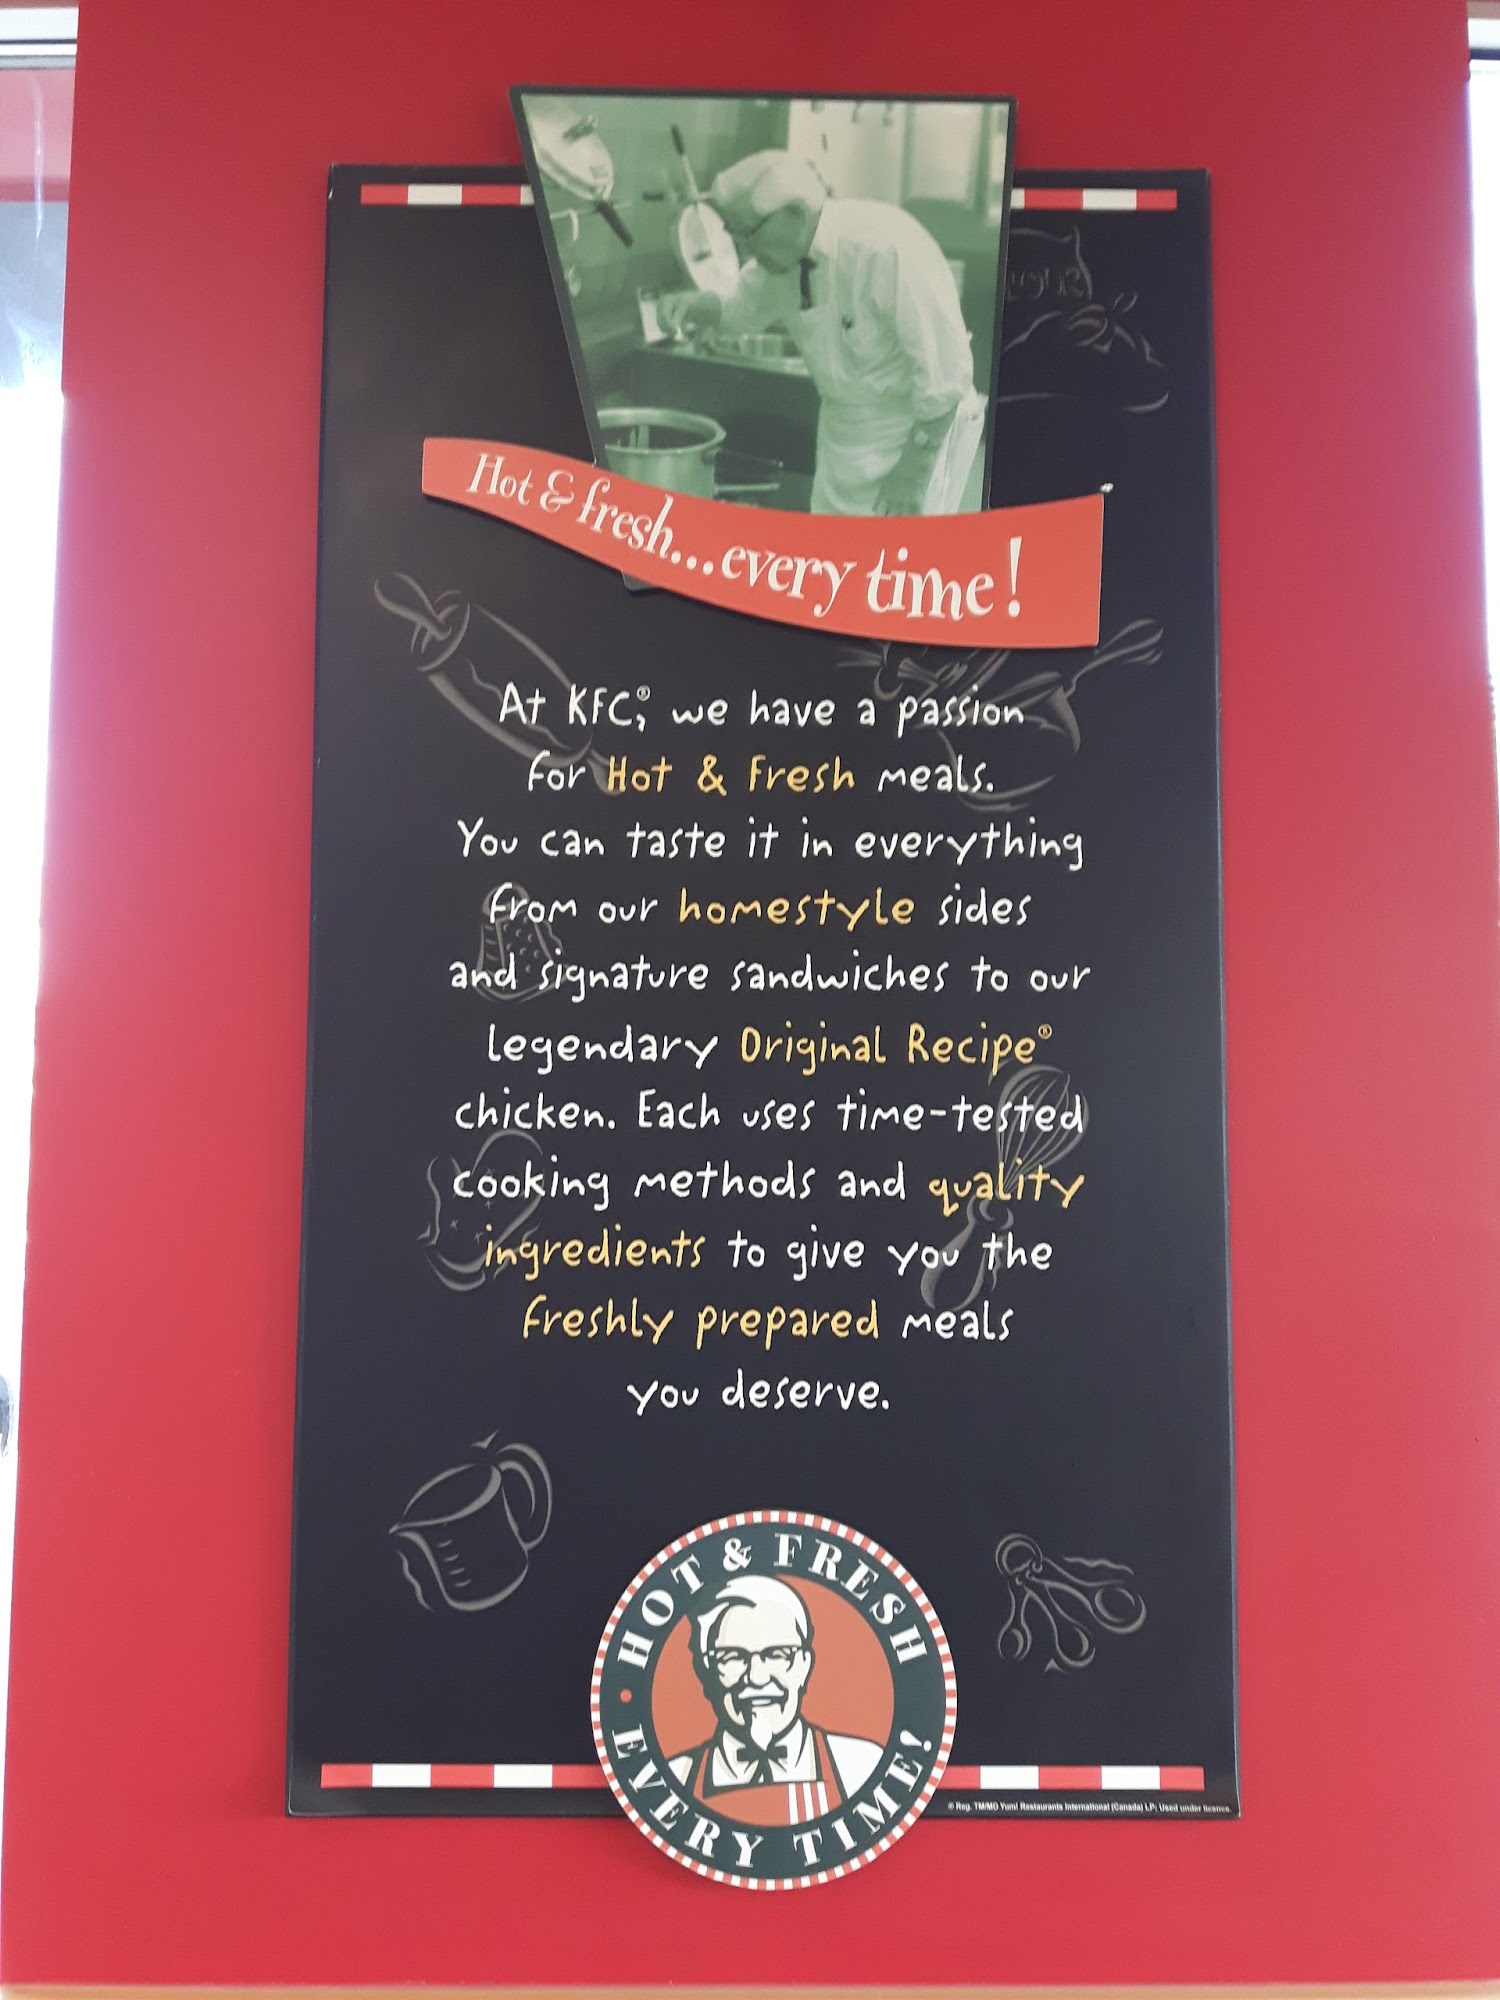 Hot & fresh...every time!
At KFC,® we have a passion
for Hot & Fresh meals.
You can taste it in everything
from our homestyle sides
and signature sandwiches to our
legendary Original Recipe®
chicken. Each uses time-tested
cooking methods and quality
ingredients to give you the
freshly prepared meals
you deserve.
HOT & FRESH
EVERY TIME!
® Reg. TM/MD Yum! Restaurants International (Canada) LP; Used under licence.